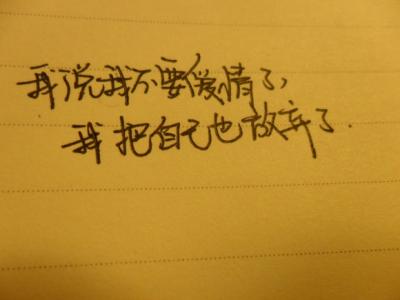 我说我不要爱情了,
我把自己也放弃了.